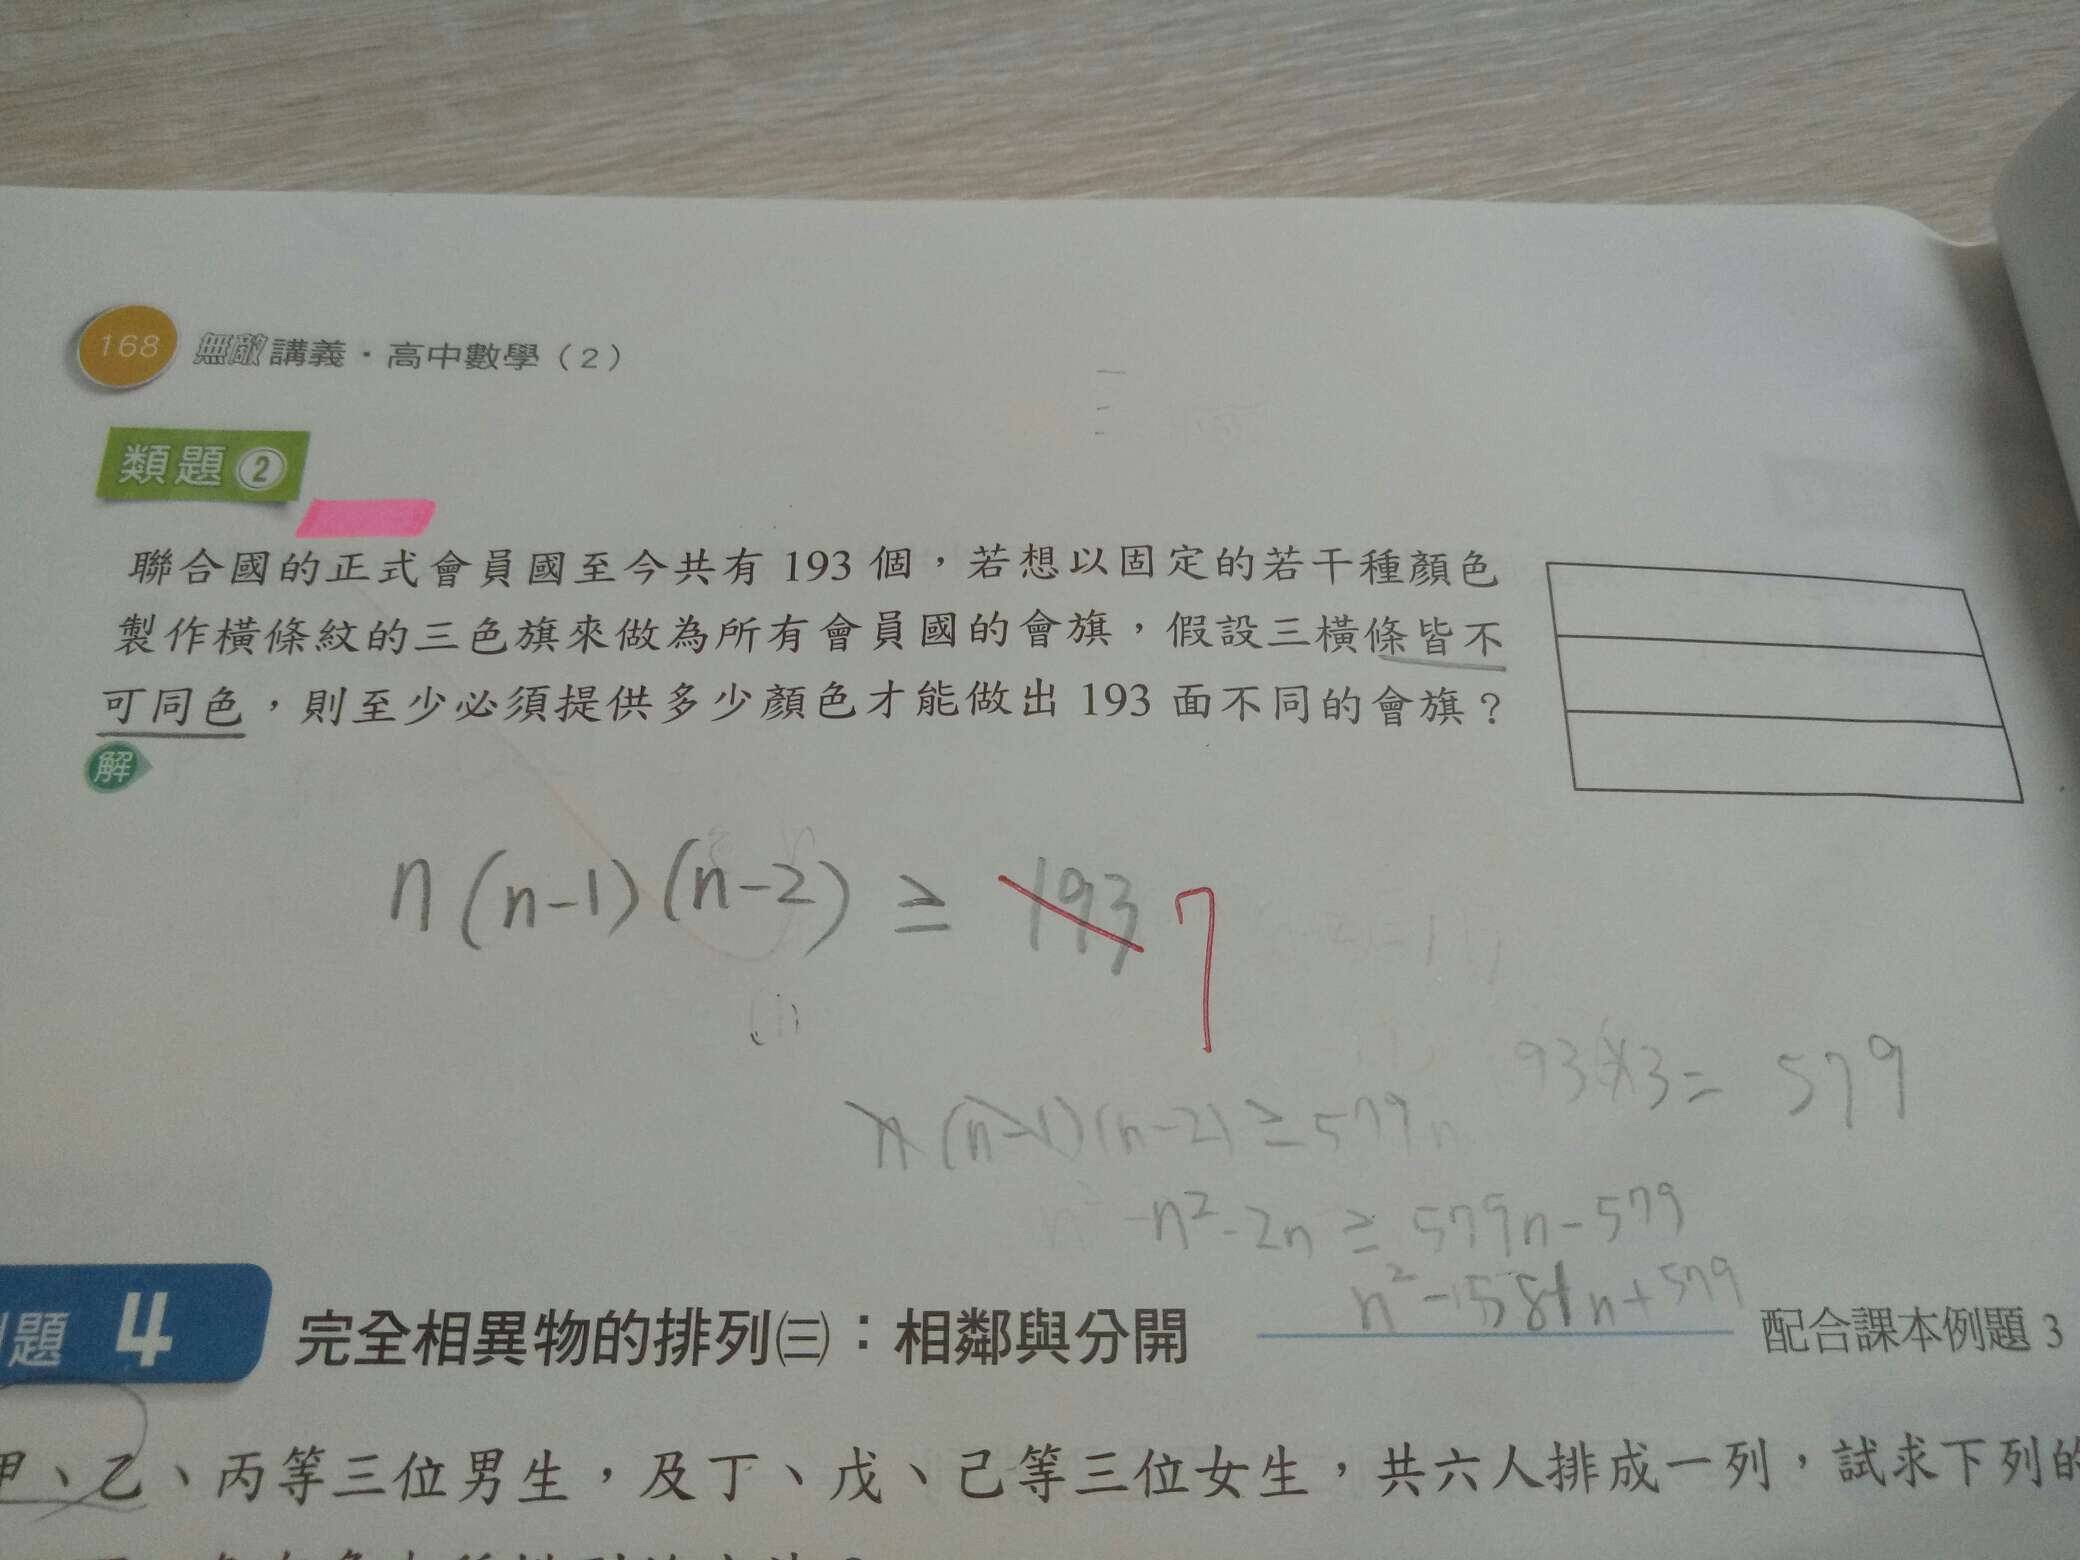 168 無敵講義・高中數學（2）
類題2
聯合國的正式會員國至今共有 193 個，若想以固定的若干種顏色
製作橫條紋的三色旗來做為所有會員國的會旗，假設三橫條皆不
可同色，則至少必須提供多少顏色才能做出 193 面不同的會旗？
解
n(n-1)(n-2) ≥ 193 7
93×3 = 579
n(n-1)(n-2) ≥ 579n
-n²-2n ≥ 579n-579
n²-581n+579
例題 4 完全相異物的排列㈢：相鄰與分開 配合課本例題 3
甲、乙、丙等三位男生，及丁、戊、己等三位女生，共六人排成一列，試求下列的